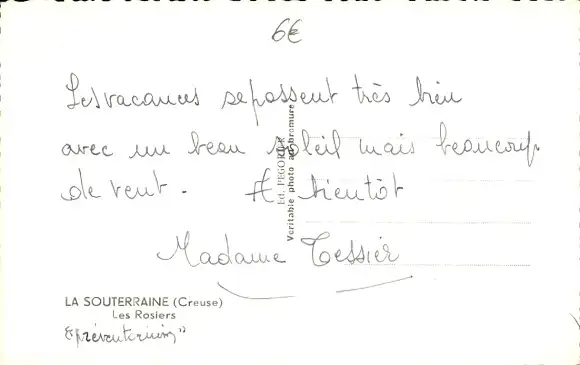 6€
Les vacances se passent très bien
avec un beau soleil mais beaucoup
de vent. A bientôt
Madame Tessier
Ed. PEGO
Véritable photo au bromure
LA SOUTERRAINE (Creuse)
Les Rosiers
"préventorium"